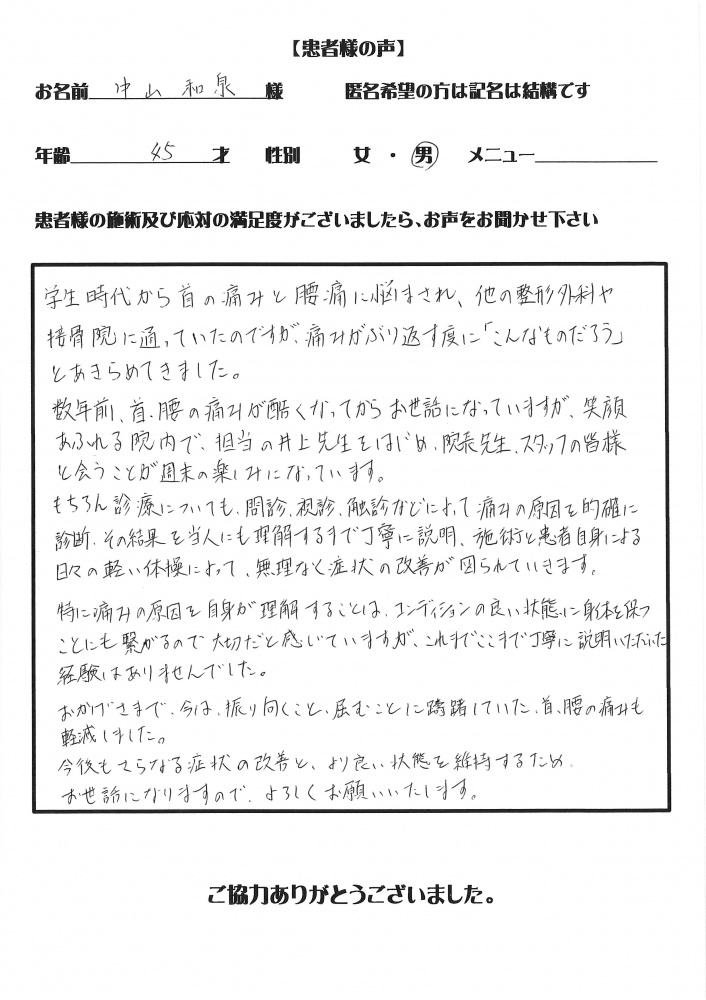 【患者様の声】
お名前 中山 和泉 様 匿名希望の方は記名は結構です
年齢 45 才 性別 女 ・ 男 メニュー
患者様の施術及び応対の満足度がございましたら、お声をお聞かせ下さい
学生時代から首の痛みと腰痛に悩まされ、他の整形外科や
接骨院に通っていたのですが、痛みがぶり返す度に「こんなものだろう」
とあきらめてきました。
数年前、首、腰の痛みが酷くなってからお世話になっていますが、笑顔
あふれる院内で、担当の井上先生をはじめ、院長先生、スタッフの皆様
と会うことが週末の楽しみになっています。
もちろん診療についても、問診、視診、触診などによって痛みの原因を的確に
診断、その結果を当人にも理解するまで丁寧に説明、施術と患者自身による
日々の軽い体操によって、無理なく症状の改善が図られていきます。
特に痛みの原因を自身が理解することは、コンディションの良い状態に身体を保つ
ことにも繋がるので大切だと感じていますが、これまでここまで丁寧に説明いただいた
経験はありませんでした。
おかげさまで、今は、振り向くこと、屈むことに躊躇していた、首、腰の痛みも
軽減しました。
今後もさらなる症状の改善と、より良い状態を維持するため、
お世話になりますので、よろしくお願いいたします。
ご協力ありがとうございました。